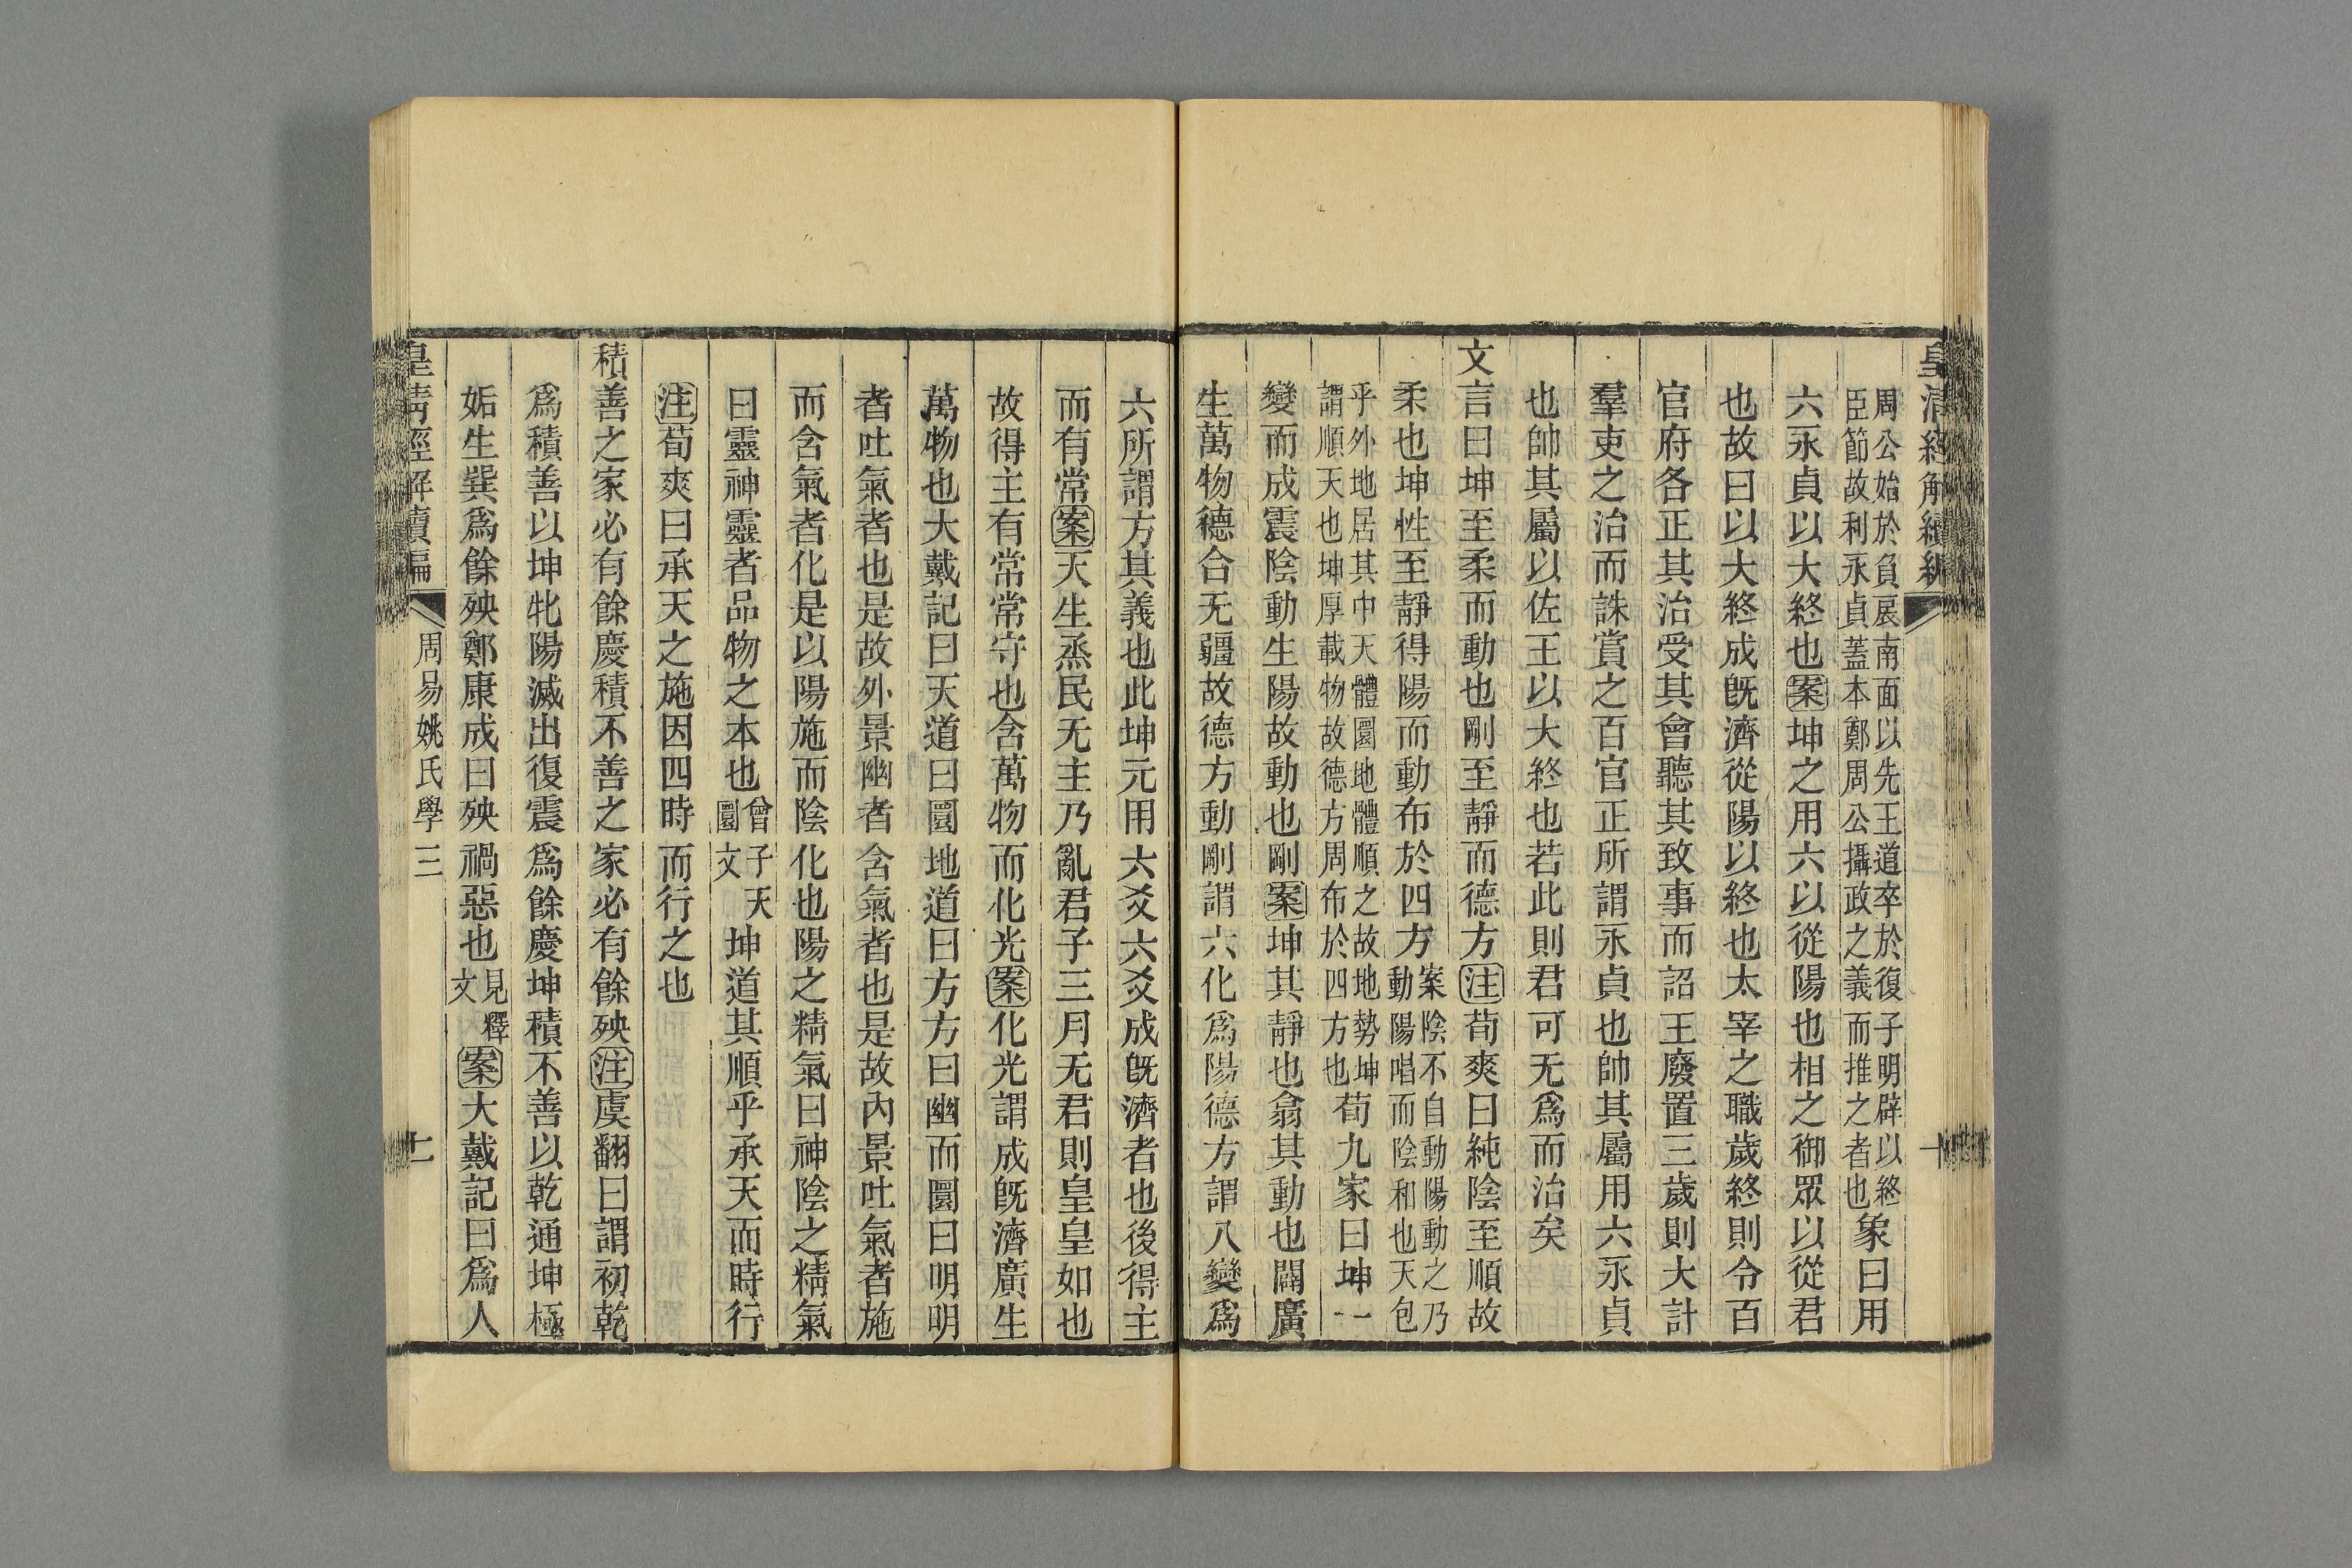 皇清經解續編
周公始於負扆南面以先王道卒於復子明辟以終
臣節故利永貞蓋本鄭周公攝政之義而推之者也
象曰用
六永貞以大終也案坤之用六以從陽也相之御眾以從君
也故曰以大終成旣濟從陽以終也太宰之職歲終則令百
官府各正其治受其會聽其致事而詔王廢置三歲則大計
羣吏之治而誅賞之百官正所謂永貞也帥其屬用六永貞
也帥其屬以佐王以大終也若此則君可无爲而治矣
文言曰坤至柔而動也剛至靜而德方注荀爽曰純陰至順故
柔也坤性至靜得陽而動布於四方
案陰不自動陽動之乃
動陽唱而陰和也天包
乎外地居其中天體圜地體順之故地勢坤
謂順天也坤厚載物故德方周布於四方也
荀九家曰坤一
變而成震陰動生陽故動也剛案坤其靜也翕其動也闢廣
生萬物德合无疆故德方動剛謂六化爲陽德方謂八變爲
六所謂方其義也此坤元用六爻六爻成旣濟者也後得主
而有常案天生烝民无主乃亂君子三月无君則皇皇如也
故得主有常常守也含萬物而化光案化光謂成旣濟廣生
萬物也大戴記曰天道曰圜地道曰方方曰幽而圜曰明明
者吐氣者也是故外景幽者含氣者也是故內景吐氣者施
而含氣者化是以陽施而陰化也陽之精氣曰神陰之精氣
曰靈神靈者品物之本也
曾子天
圜文
坤道其順乎承天而時行
注荀爽曰承天之施因四時而行之也
積善之家必有餘慶積不善之家必有餘殃注虞翻曰謂初乾
爲積善以坤牝陽滅出復震爲餘慶坤積不善以乾通坤極
姤生巽爲餘殃鄭康成曰殃禍惡也
見釋
文
案大戴記曰爲人
皇清經解續編
周易姚氏學三